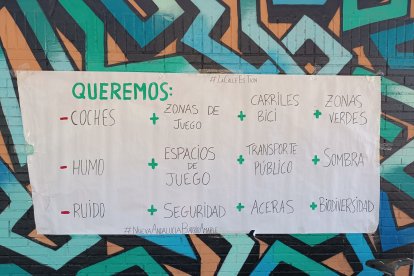 #LaCalleEsTuya
QUEREMOS:
- COCHES
+ ZONAS DE JUEGO
+ CARRILES BICI
+ ZONAS VERDES
- HUMO
+ ESPACIOS DE JUEGO
+ TRANSPORTE PÚBLICO
+ SOMBRA
- RUIDO
+ SEGURIDAD
+ ACERAS
+ BIODIVERSIDAD